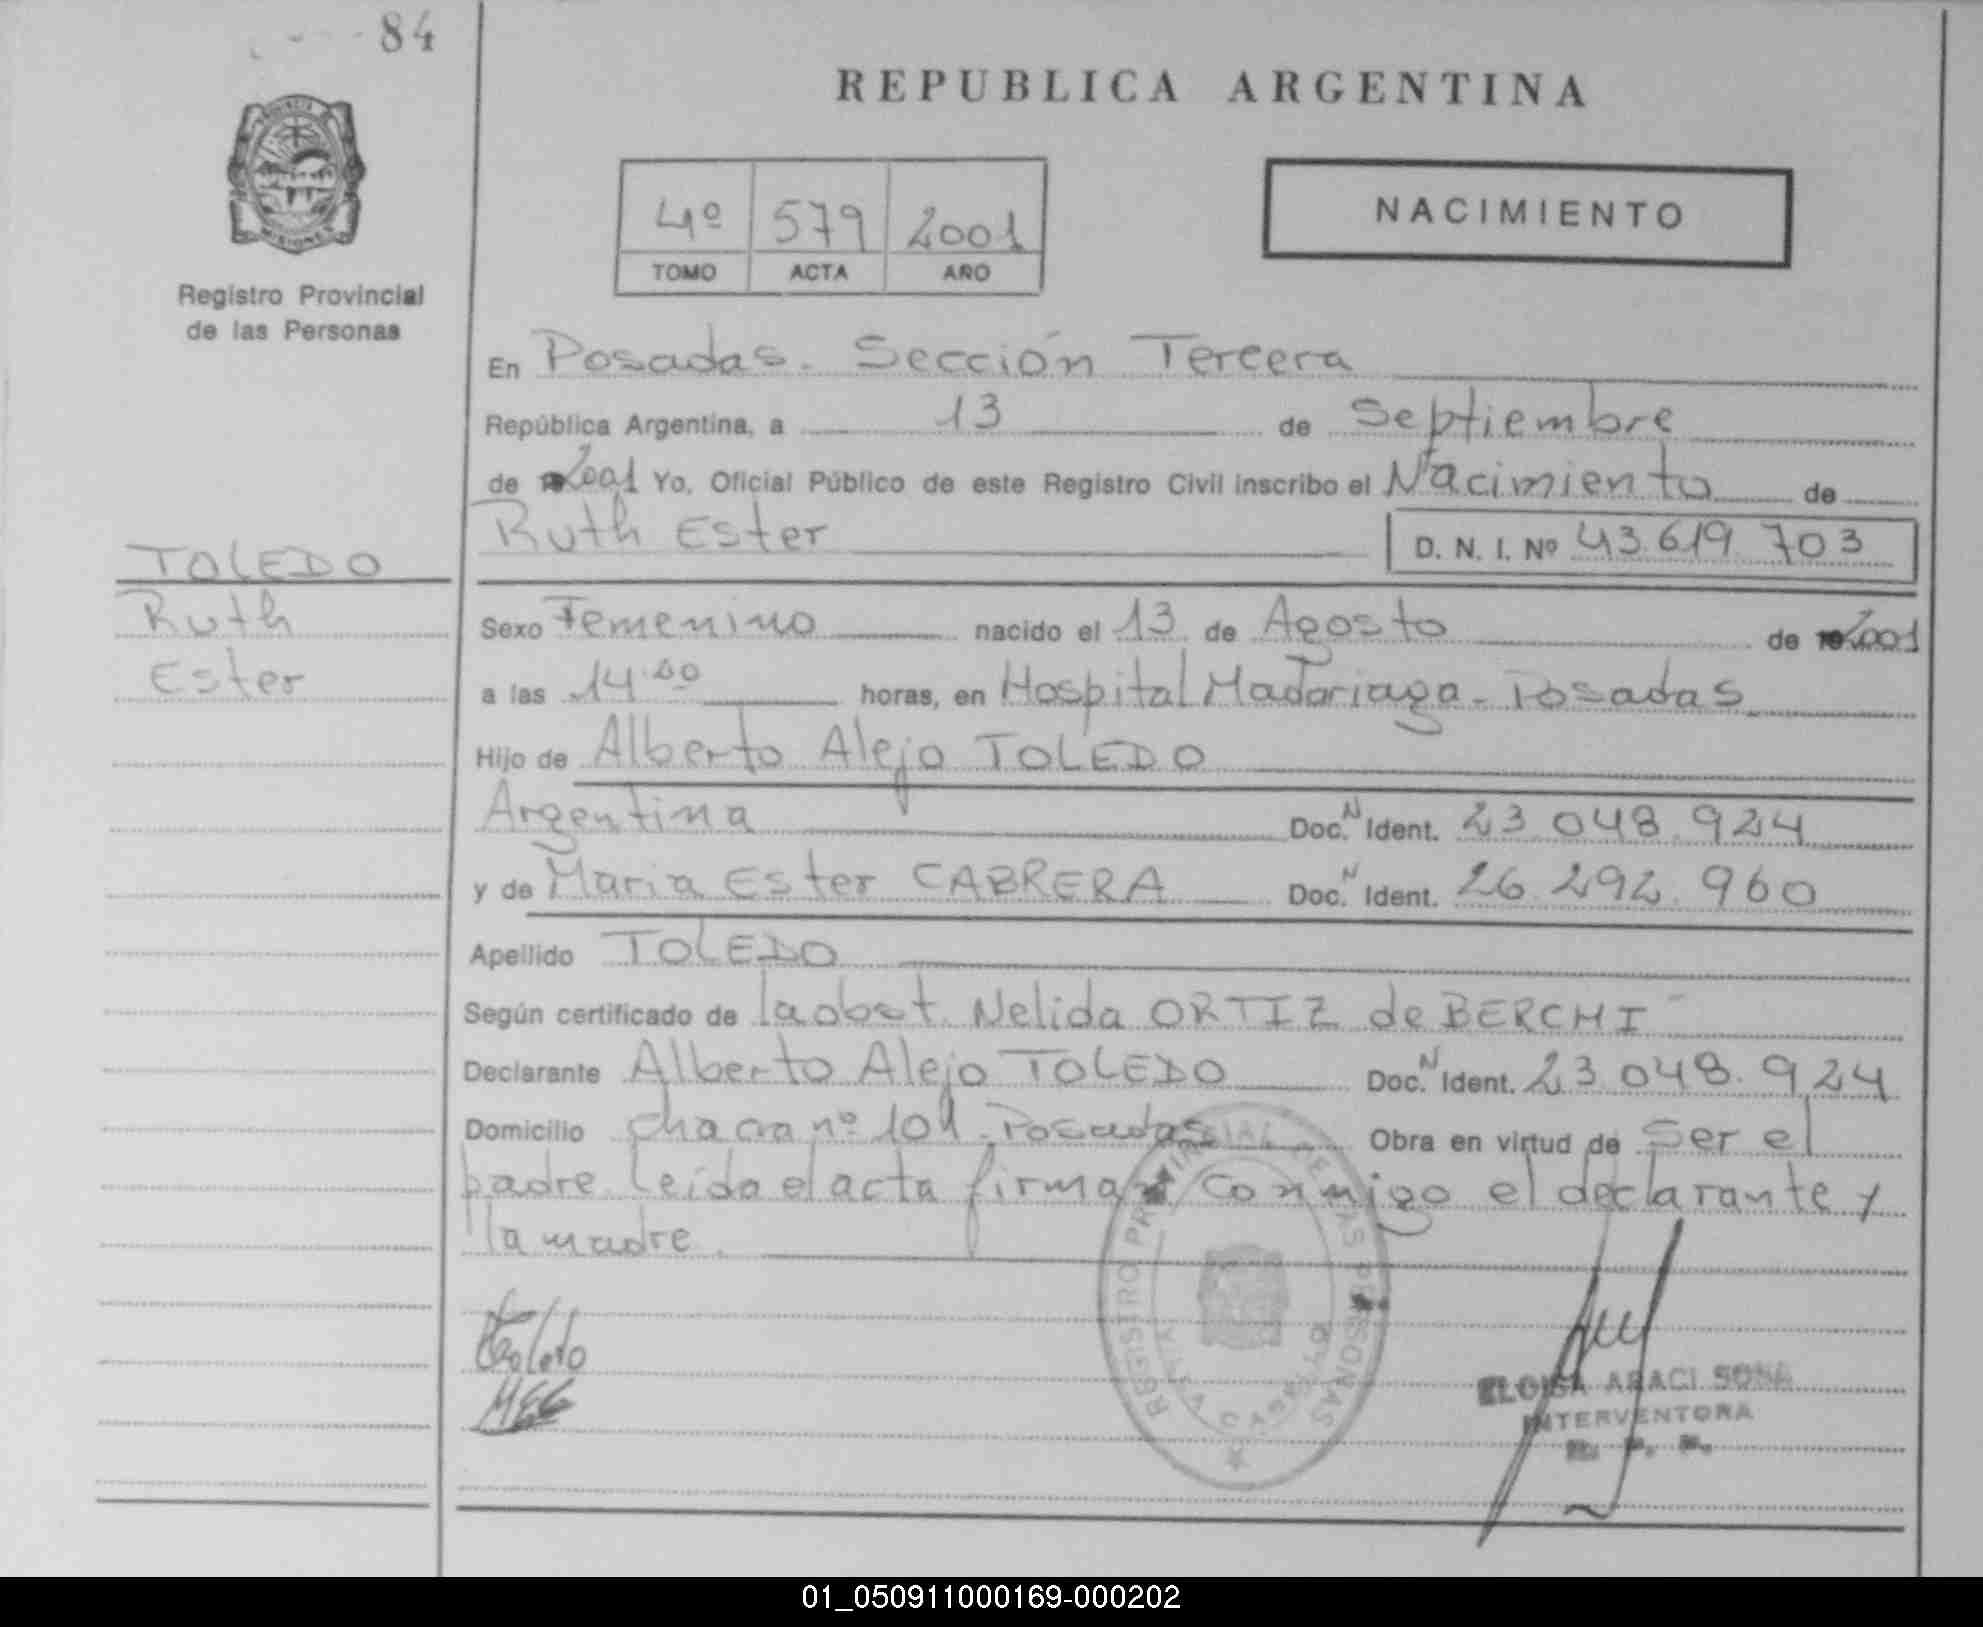 84
REPUBLICA ARGENTINA
MISIONES
Registro Provincial
de las Personas
4º 579 2001
TOMO ACTA AÑO
NACIMIENTO
En Posadas. Sección Tercera
República Argentina, a 13 de Septiembre
de 2001 Yo, Oficial Público de este Registro Civil inscribo el Nacimiento de
Ruth Ester D. N. I. Nº 43.619.703
TOLEDO
Ruth
Ester
Sexo Femenino nacido el 13 de Agosto de 2001
a las 14.00 horas, en Hospital Madariaga - Posadas
Hijo de Alberto Alejo TOLEDO
Argentina Doc. N Ident. 23.048.924
y de Maria Ester CABRERA Doc. N Ident. 26.292.960
Apellido TOLEDO
Según certificado de la obst. Nelida ORTIZ de BERCHI
Declarante Alberto Alejo TOLEDO Doc. N Ident. 23.048.924
Domicilio chacra nº 101 - Posadas Obra en virtud de Ser el
padre. Leída el acta firman conmigo el declarante y
la madre.
REGISTRO PROVINCIAL DE LAS PERSONAS
Toledo
MEC
ELOISA ARACI SOSA
INTERVENTORA
R. P. P.
01_050911000169-000202